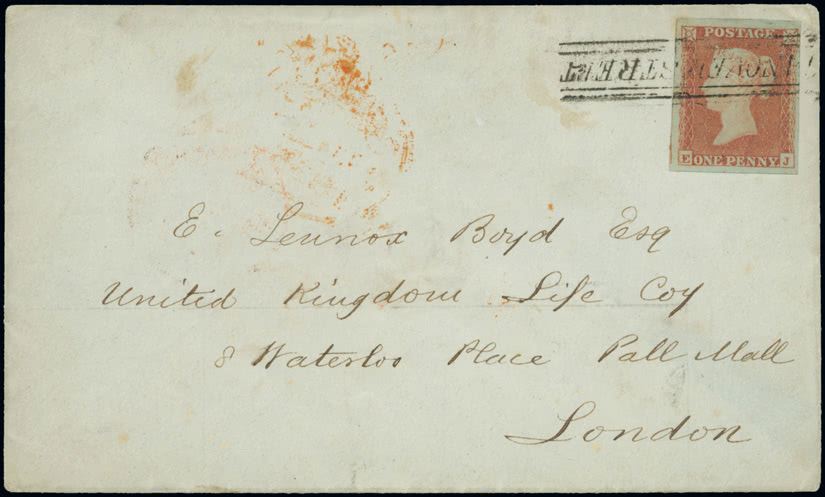 POSTAGE
STREET
E ONE PENNY J
E. Lennox Boyd Esq
United Kingdom Life Coy
8 Waterloo Place Pall Mall
London